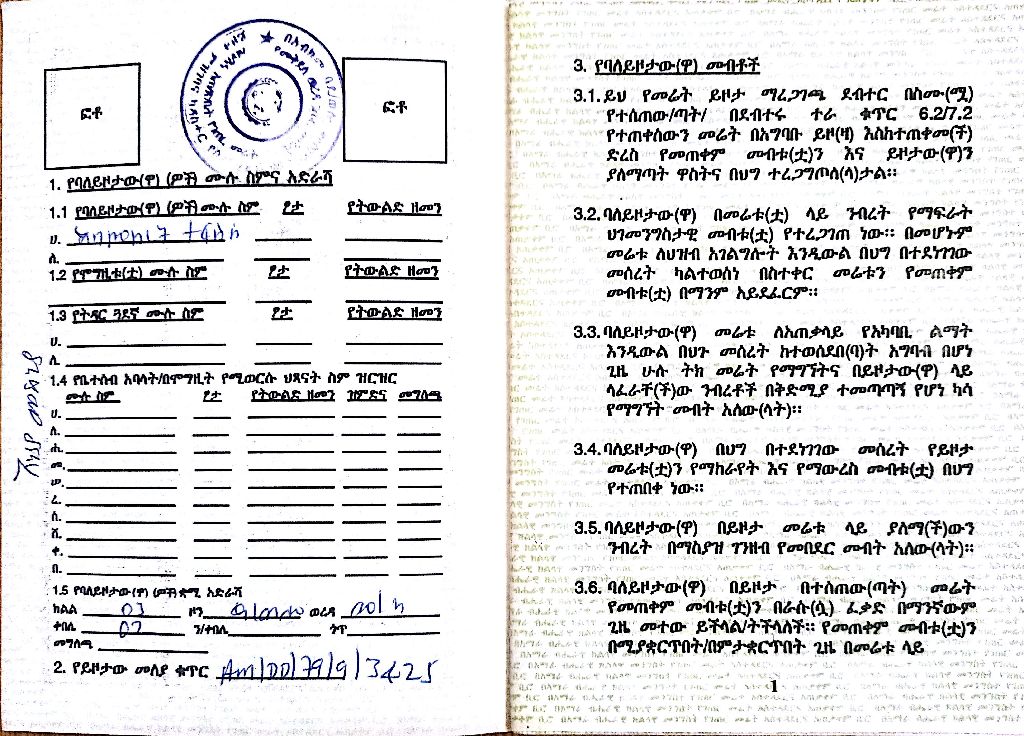 ፎቶ
ፎቶ
1. የባለይዞታው(ዋ) (ዎች) ሙሉ ስምና አድራሻ
1.1 የባለይዞታው(ዋ) (ዎች) ሙሉ ስም ፆታ የትውልድ ዘመን
ሀ.
ለ.
1.2 የሞግዚቱ(ቷ) ሙሉ ስም ፆታ የትውልድ ዘመን
1.3 የትዳር ጓደኛ ሙሉ ስም ፆታ የትውልድ ዘመን
ሀ.
ለ.
1.4 የቤተሰብ አባላት/በሞግዚት የሚወርሱ ህጻናት ስም ዝርዝር
ሙሉ ስም ፆታ የትውልድ ዘመን ዝምድና መግለጫ
ሀ.
ለ.
ሐ.
መ.
ሠ.
ረ.
ሰ.
ሸ.
ቀ.
በ.
1.5 የባለይዞታው(ዋ) (ዎች) ቋሚ አድራሻ
ክልል 03 ዞን ወረዳ
ቀበሌ 07 ን/ቀበሌ ጎጥ
መግለጫ
2. የይዞታው መለያ ቁጥር Am/00/79/9/3425
3. የባለይዞታው(ዋ) መብቶች
3.1. ይህ የመሬት ይዞታ ማረጋገጫ ደብተር በስሙ(ሟ)
የተሰጠው/ጣት/ በደብተሩ ተራ ቁጥር 6.2/7.2
የተጠቀሰውን መሬት በአግባቡ ይዞ(ዛ) እስከተጠቀመ(ች)
ድረስ የመጠቀም መብቱ(ቷ)ን እና ይዞታው(ዋ)ን
ያለማጣት ዋስትና በህግ ተረጋግጦለ(ላ)ታል።
3.2. ባለይዞታው(ዋ) በመሬቱ(ቷ) ላይ ንብረት የማፍራት
ህገመንግስታዊ መብቱ(ቷ) የተረጋገጠ ነው። በመሆኑም
መሬቱ ለህዝብ አገልግሎት እንዲውል በህግ በተደነገገው
መሰረት ካልተወሰነ በስተቀር መሬቱን የመጠቀም
መብቱ(ቷ) በማንም አይደፈርም።
3.3. ባለይዞታው(ዋ) መሬቱ ለአጠቃላይ የአካባቢ ልማት
እንዲውል በህጉ መሰረት ከተወሰደበ(ባ)ት አግባብ በሆነ
ጊዜ ሁሉ ትክ መሬት የማግኘትና በይዞታው(ዋ) ላይ
ላፈራቸ(ች)ው ንብረቶች በቅድሚያ ተመጣጣኝ የሆነ ካሳ
የማግኘት መብት አለው(ላት)።
3.4. ባለይዞታው(ዋ) በህግ በተደነገገው መሰረት የይዞታ
መሬቱ(ቷ)ን የማከራየት እና የማውረስ መብቱ(ቷ) በህግ
የተጠበቀ ነው።
3.5. ባለይዞታው(ዋ) በይዞታ መሬቱ ላይ ያለማ(ች)ውን
ንብረት በማስያዝ ገንዘብ የመበደር መብት አለው(ላት)።
3.6. ባለይዞታው(ዋ) በይዞታ በተሰጠው(ጣት) መሬት
የመጠቀም መብቱ(ቷ)ን በራሱ(ሷ) ፈቃድ በማንኛውም
ጊዜ መተው ይችላል/ትችላለች። የመጠቀም መብቱ(ቷ)ን
በሚያቋርጥበት/በምታቋርጥበት ጊዜ በመሬቱ ላይ
1